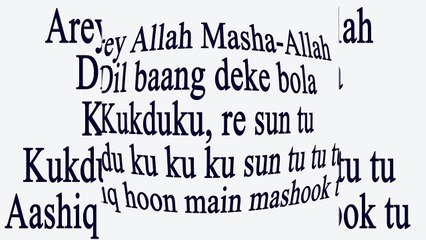 Arey Allah Masha-Allah
Dil baang deke bola
Kukduku, re sun tu
Kukdu ku ku ku sun tu tu tu
Aashiq hoon main mashook tu